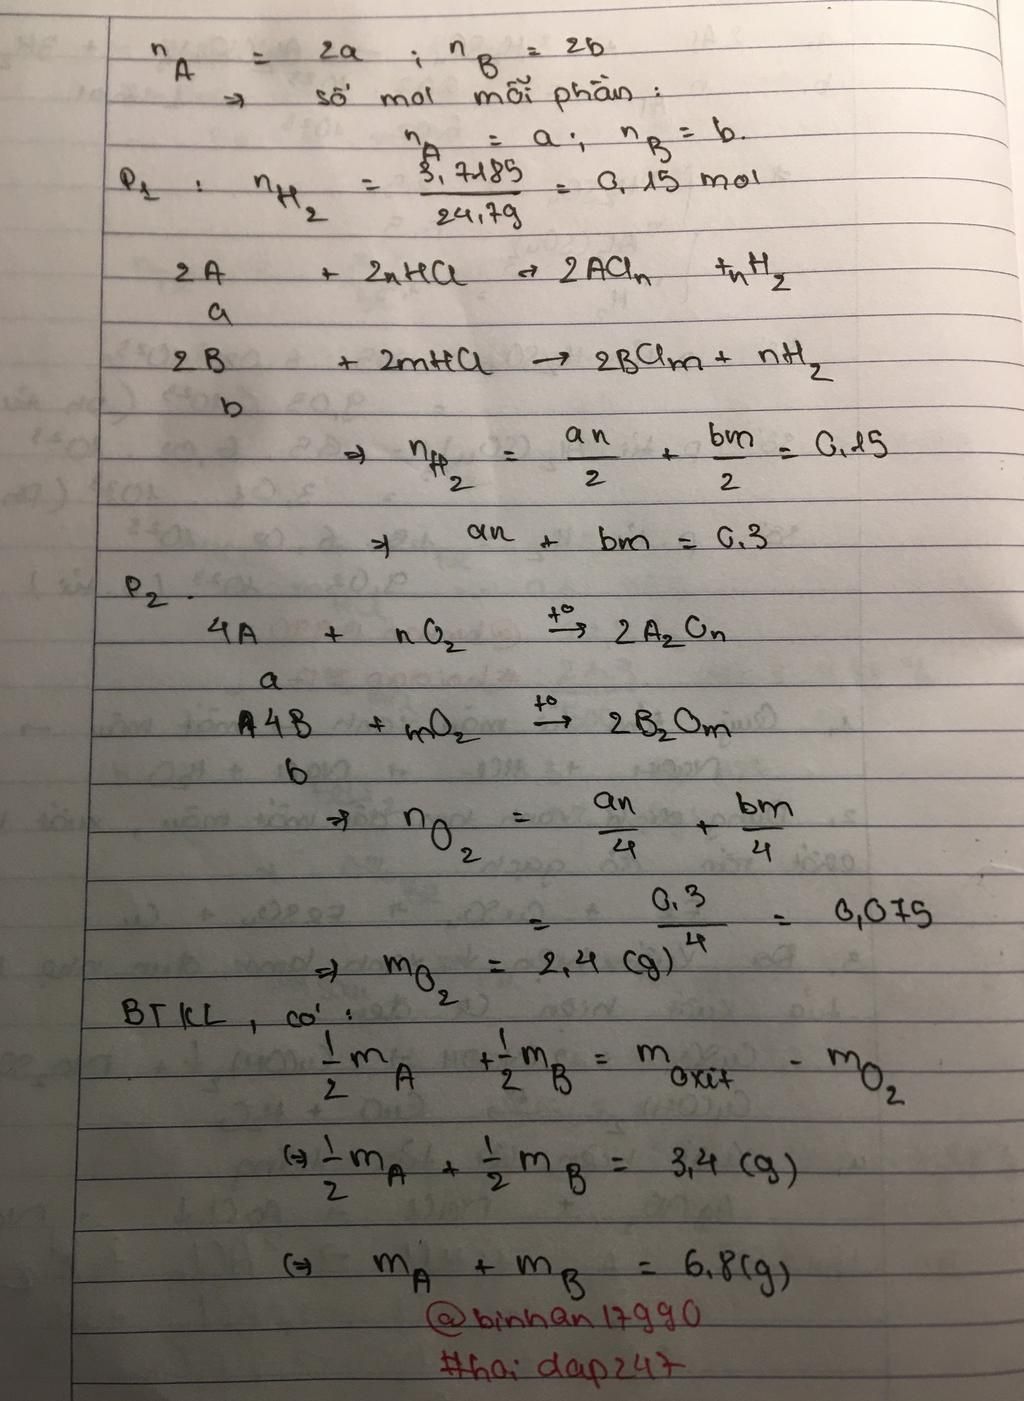 n_A = 2a ; n_B = 2b
⇒ số mol mỗi phần :
n_A = a ; n_B = b.
P1 : n_H2 = 3,7185 / 24,79 = 0,15 mol
2A + 2nHCl → 2ACln + nH2
a
2B + 2mHCl → 2BClm + nH2
b
⇒ n_H2 = an/2 + bm/2 = 0,15
⇒ an + bm = 0,3
P2 .
4A + nO2 t° → 2A2On
a
4B + mO2 t° → 2B2Om
b
⇒ n_O2 = an/4 + bm/4
= 0,3/4 = 0,075
⇒ m_O2 = 2,4 (g)
BTKL , có :
1/2 m_A + 1/2 m_B = m_oxit - m_O2
(⇒ 1/2 m_A + 1/2 m_B = 3,4 (g)
(⇒ m_A + m_B = 6,8(g)
@binhan17990
#hoidap247